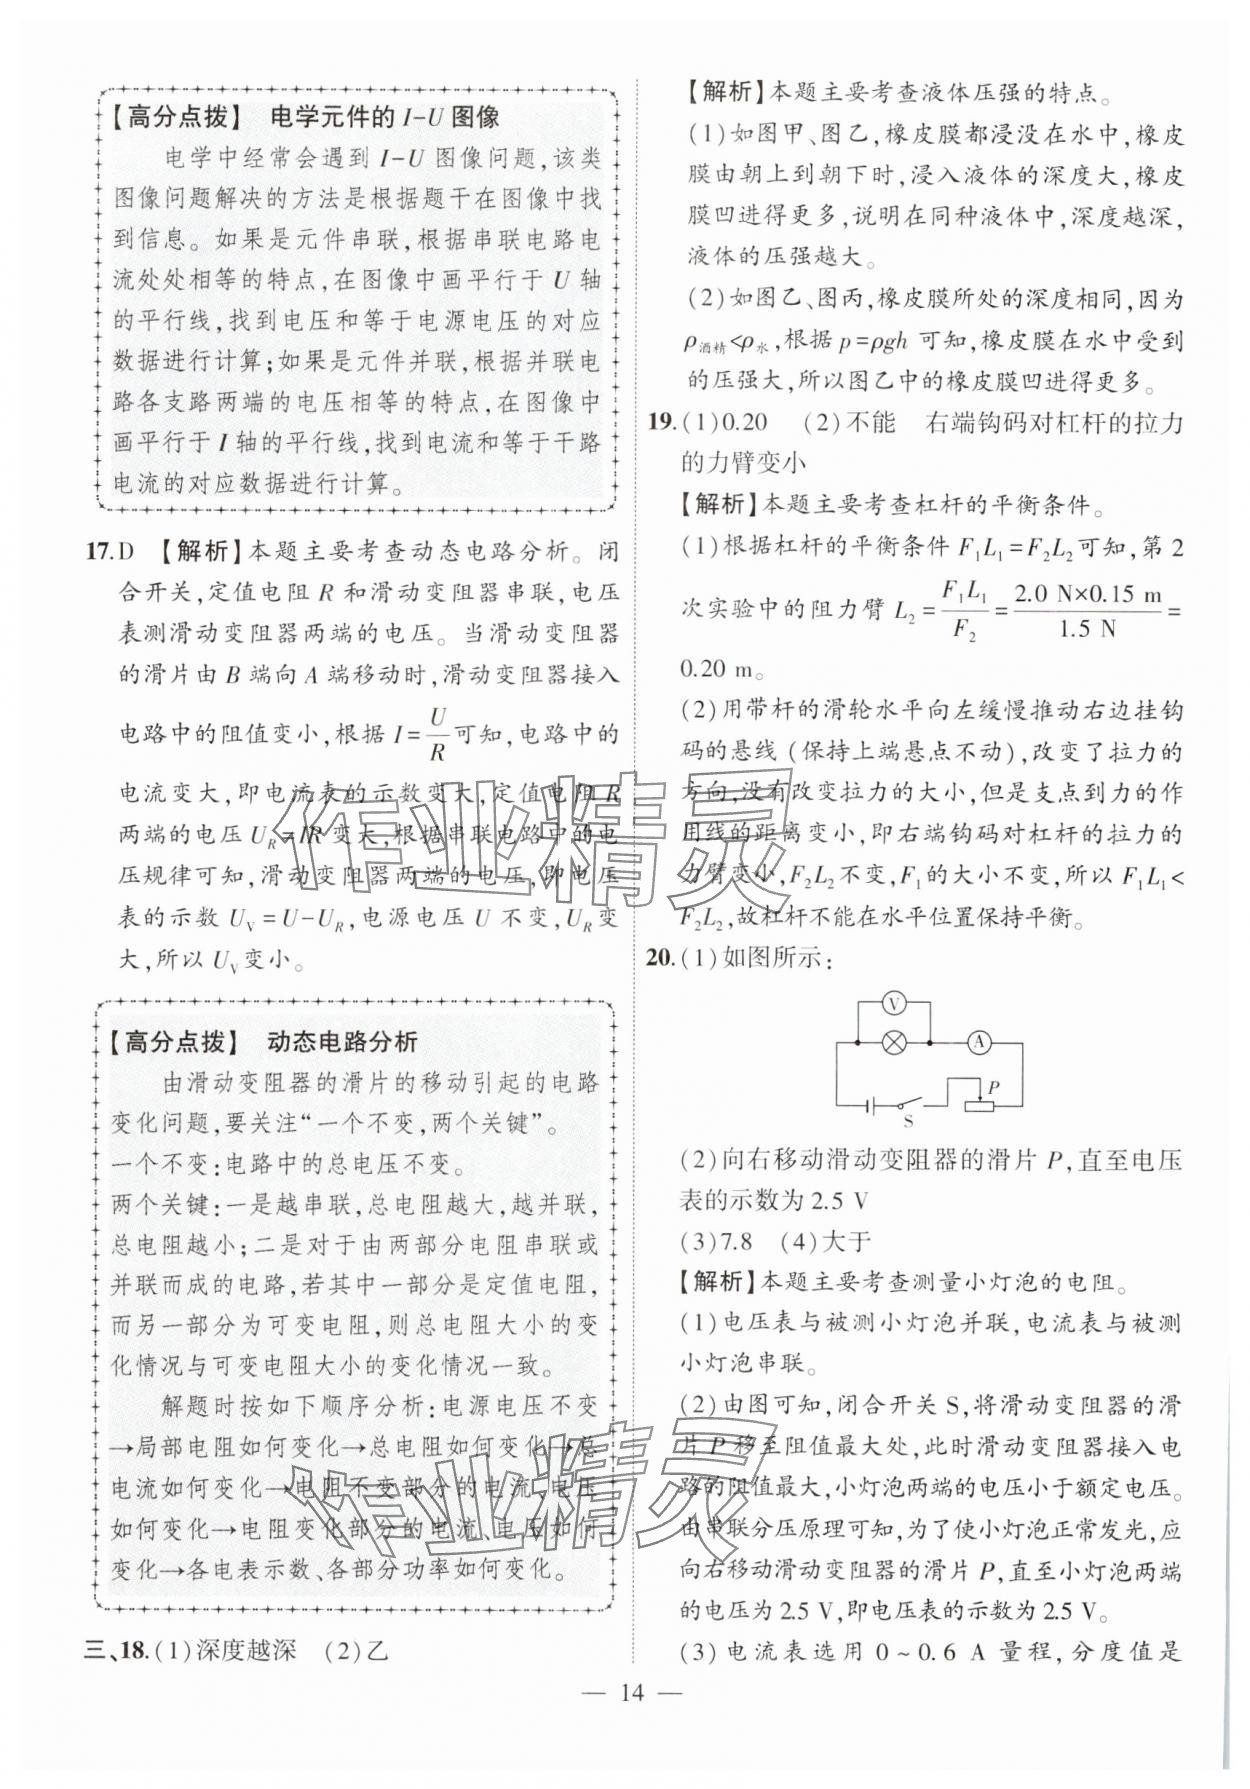 【高分点拨】 电学元件的 I-U 图像
电学中经常会遇到 I-U 图像问题,该类
图像问题解决的方法是根据题干在图像中找
到信息。如果是元件串联,根据串联电路电
流处处相等的特点,在图像中画平行于 U 轴
的平行线,找到电压和等于电源电压的对应
数据进行计算;如果是元件并联,根据并联电
路各支路两端的电压相等的特点,在图像中
画平行于 I 轴的平行线,找到电流和等于干路
电流的对应数据进行计算。
17.D 【解析】本题主要考查动态电路分析。闭
合开关,定值电阻 R 和滑动变阻器串联,电压
表测滑动变阻器两端的电压。当滑动变阻器
的滑片由 B 端向 A 端移动时,滑动变阻器接入
电路中的阻值变小,根据 I=U/R 可知,电路中的
电流变大,即电流表的示数变大,定值电阻 R
两端的电压 U_R=IR 变大,根据串联电路中的电
压规律可知,滑动变阻器两端的电压,即电压
表的示数 U_V=U-U_R,电源电压 U 不变,U_R变
大,所以 U_V变小。
【高分点拨】 动态电路分析
由滑动变阻器的滑片的移动引起的电路
变化问题,要关注“一个不变,两个关键”。
一个不变:电路中的总电压不变。
两个关键:一是越串联,总电阻越大,越并联,
总电阻越小;二是对于由两部分电阻串联或
并联而成的电路,若其中一部分是定值电阻,
而另一部分为可变电阻,则总电阻大小的变
化情况与可变电阻大小的变化情况一致。
解题时按如下顺序分析:电源电压不变
→局部电阻如何变化→总电阻如何变化→总
电流如何变化→电阻不变部分的电流、电压
如何变化→电阻变化部分的电流、电压如何
变化→各电表示数、各部分功率如何变化。
三、18.(1)深度越深 (2)乙
【解析】本题主要考查液体压强的特点。
(1)如图甲、图乙,橡皮膜都浸没在水中,橡皮
膜由朝上到朝下时,浸入液体的深度大,橡皮
膜凹进得更多,说明在同种液体中,深度越深,
液体的压强越大。
(2)如图乙、图丙,橡皮膜所处的深度相同,因为
ρ酒精<ρ水,根据 p=ρgh 可知,橡皮膜在水中受到
的压强大,所以图乙中的橡皮膜凹进得更多。
19.(1)0.20 (2)不能 右端钩码对杠杆的拉力
的力臂变小
【解析】本题主要考查杠杆的平衡条件。
(1)根据杠杆的平衡条件 F₁L₁=F₂L₂可知,第 2
次实验中的阻力臂 L₂=F₁L₁/F₂=2.0 N×0.15 m/1.5 N=
0.20 m。
(2)用带杆的滑轮水平向左缓慢推动右边挂钩
码的悬线(保持上端悬点不动),改变了拉力的
方向,没有改变拉力的大小,但是支点到力的作
用线的距离变小,即右端钩码对杠杆的拉力的
力臂变小,F₂L₂不变,F₁的大小不变,所以 F₁L₁<
F₂L₂,故杠杆不能在水平位置保持平衡。
20.(1)如图所示:
V
A
P
S
(2)向右移动滑动变阻器的滑片 P,直至电压
表的示数为 2.5 V
(3)7.8 (4)大于
【解析】本题主要考查测量小灯泡的电阻。
(1)电压表与被测小灯泡并联,电流表与被测
小灯泡串联。
(2)由图可知,闭合开关 S,将滑动变阻器的滑
片 P 移至阻值最大处,此时滑动变阻器接入电
路的阻值最大,小灯泡两端的电压小于额定电压。
由串联分压原理可知,为了使小灯泡正常发光,应
向右移动滑动变阻器的滑片 P,直至小灯泡两端
的电压为 2.5 V,即电压表的示数为 2.5 V。
(3)电流表选用 0~0.6 A 量程,分度值是
— 14 —
作业精灵
作业精灵